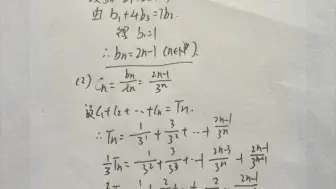 由 b₁+4b₃=7b₂.
得 b₁=1
∴ bn=2n-1 (n∈N*).
(2) Cn = bn/an = (2n-1)/3ⁿ
设C₁+C₂+…+Cn=Tn.
∴Tn = 1/3¹ + 3/3² + … + (2n-1)/3ⁿ
1/3 Tn = 1/3² + 3/3³ + … + (2n-3)/3ⁿ + (2n-1)/3ⁿ⁺¹